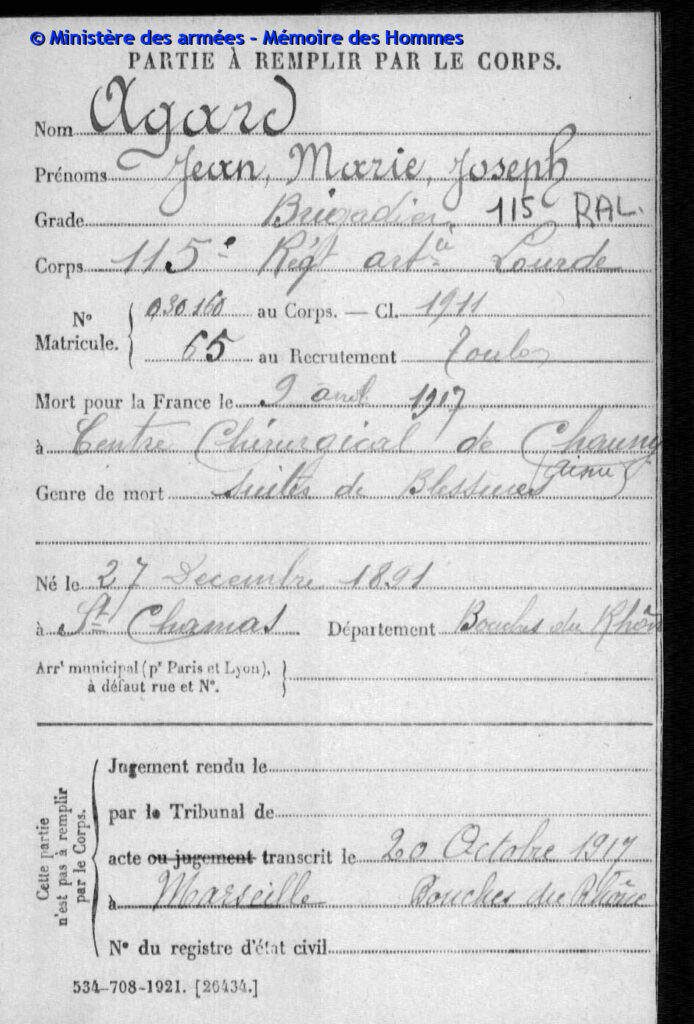 © Ministère des armées - Mémoire des Hommes
PARTIE À REMPLIR PAR LE CORPS.
Nom Agard
Prénoms Jean, Marie, Joseph
Grade Brigadier 115 RAL.
Corps 115e Régt artie Lourde
N° Matricule.
030160 au Corps. — Cl. 1911
65 au Recrutement Toulon
Mort pour la France le 9 avril 1917
à Centre Chirurgical de Chauny
(Aisne)
Genre de mort suites de Blessures
Né le 27 Decembre 1891
à St Chamas Département Bouches du Rhône
Arrt municipal (pr Paris et Lyon),
à défaut rue et N°.
Cette partie n'est pas à remplir par le Corps.
Jugement rendu le
par le Tribunal de
acte ou jugement transcrit le 20 Octobre 1917
à Marseille Bouches du Rhône
N° du registre d'état civil
534-708-1921. [26434.]